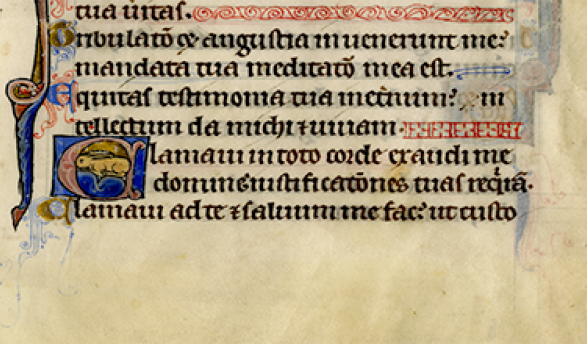 tua ūitas.
Tribulatō ⁊ angustia inuenerunt me:
mandata tua meditatō mea est.
Equitas testimonia tua in eternum: in
tellectum da michi ⁊ uiuam.
Clamaui in toto corde exaudi me
domine iustificatōnes tuas requirā.
Clamaui ad te ⁊ saluum me fac: ut custo